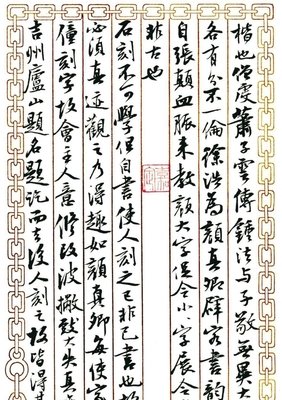 楷也僧虔蕭子雲傳鍾法與子敬無異大
各有分不一倫徐浩為顏真卿辟客書韻
自張顛血脉来教顏大字促令小小字展令
非古也
石刻不可學但自書使人刻之已非己書也故
必須真迹觀之乃得趣如顏真卿每使家
僮刻字故會主人意修改波撇致大失真
吉州廬山題名題訖而去後人刻之故皆得其